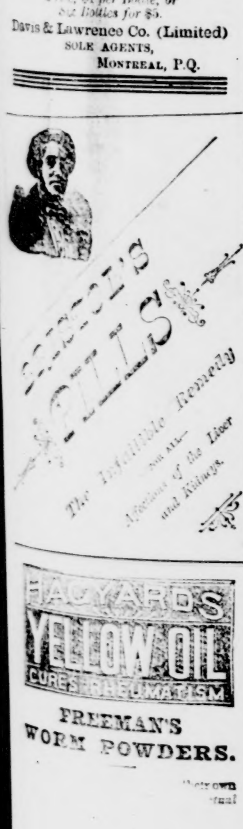 Six Bottles for $5.
Davis & Lawrence Co. (Limited)
SOLE AGENTS,
MONTREAL, P.Q.
BRISTOL'S
PILLS
The Infallible Remedy
FOR ALL
Affections of the Liver
and Kidneys.
HAGYARD'S
YELLOW OIL
CURES RHEUMATISM
FREEMAN'S
WORM POWDERS.
their own